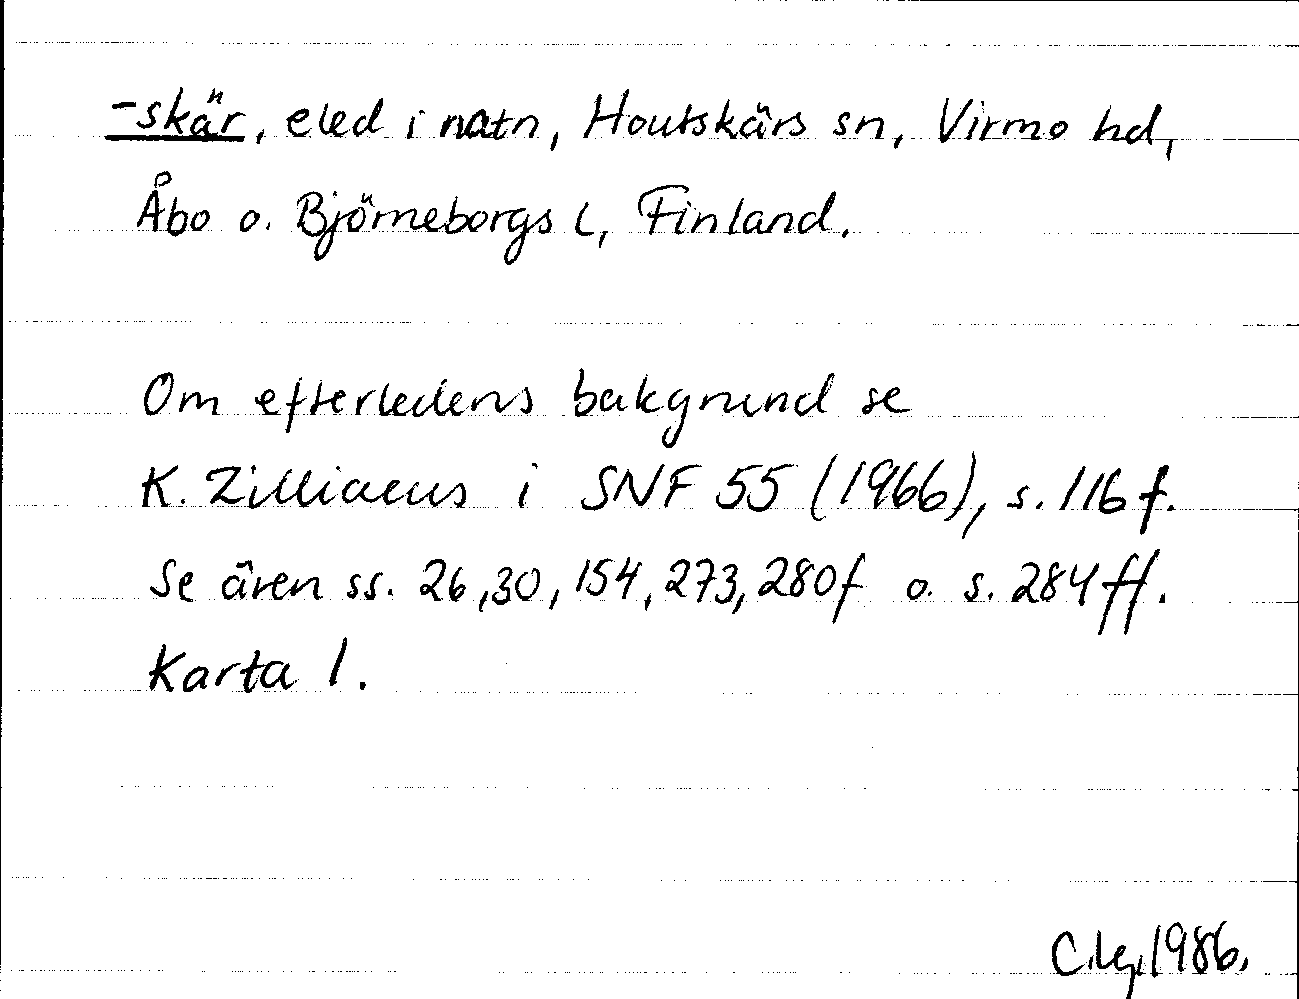 -skär, eled i natn, Houtskärs sn, Virmo hd,
Åbo o. Björneborgs l, Finland.
Om efterledens bakgrund se
K. Zilliacus i SNF 55 (1966), s. 116 f.
Se även ss. 26, 30, 154, 273, 280f o. s. 284 ff.
Karta 1.
1986.